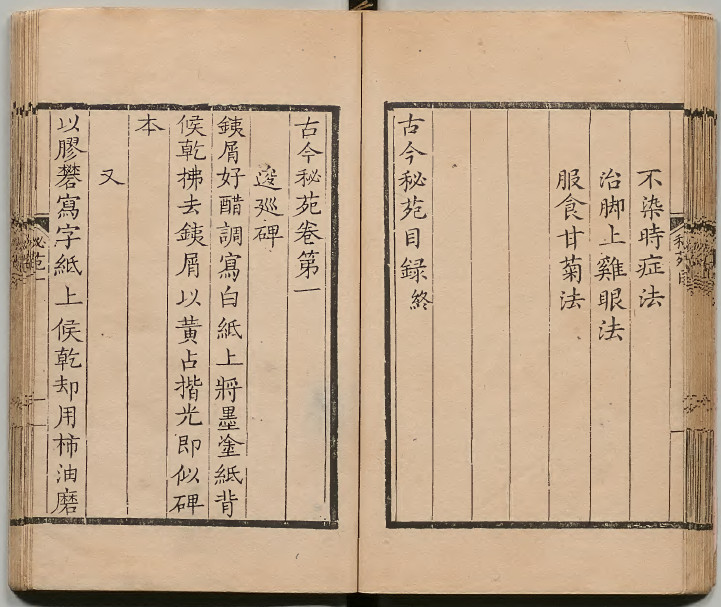 不染時症法
治脚上雞眼法
服食甘菊法
古今秘苑目録終
古今秘苑卷第一
逡廵碑
銕屑好醋調寫白紙上將墨塗紙背
候乾拂去銕屑以黄占揩光即似碑
本
又
以膠礬寫字紙上候乾却用柿油磨